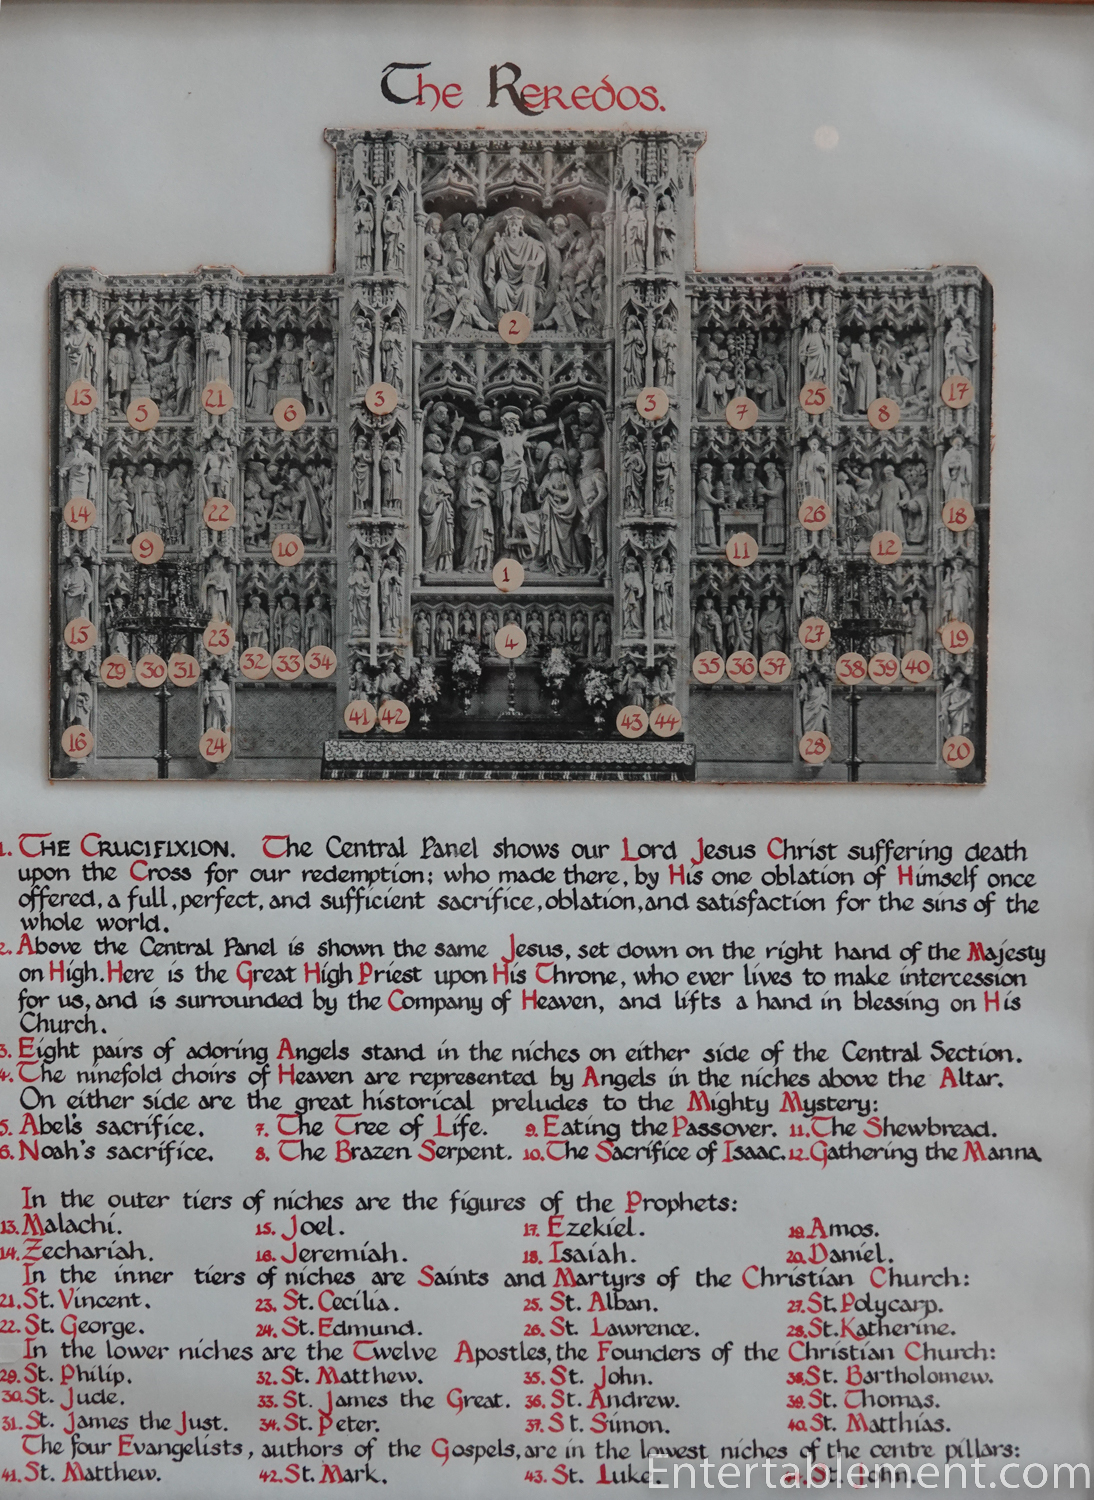 The Reredos.
2
13 5 21 6 3 3 7 25 8 17
14 9 22 10 1 11 26 12 18
15 29 30 31 23 32 33 34 4 35 36 37 27 38 39 40 19
16 24 41 42 43 44 28 20
1. The Crucifixion. The Central Panel shows our Lord Jesus Christ suffering death
upon the Cross for our redemption; who made there, by His one oblation of Himself once
offered, a full, perfect, and sufficient sacrifice, oblation, and satisfaction for the sins of the
whole world.
2. Above the Central Panel is shown the same Jesus, set down on the right hand of the Majesty
on High. Here is the Great High Priest upon His Throne, who ever lives to make intercession
for us, and is surrounded by the Company of Heaven, and lifts a hand in blessing on His
Church.
3. Eight pairs of adoring Angels stand in the niches on either side of the Central Section.
4. The ninefold choirs of Heaven are represented by Angels in the niches above the Altar.
On either side are the great historical preludes to the Mighty Mystery:
5. Abel's sacrifice. 7. The Tree of Life. 9. Eating the Passover. 11. The Shewbread.
6. Noah's sacrifice. 8. The Brazen Serpent. 10. The Sacrifice of Isaac. 12. Gathering the Manna
In the outer tiers of niches are the figures of the Prophets:
13. Malachi. 15. Joel. 17. Ezekiel. 19. Amos.
14. Zechariah. 16. Jeremiah. 18. Isaiah. 20. Daniel.
In the inner tiers of niches are Saints and Martyrs of the Christian Church:
21. St. Vincent. 23. St. Cecilia. 25. St. Alban. 27. St. Polycarp.
22. St. George. 24. St. Edmund. 26. St. Lawrence. 28. St. Katherine.
In the lower niches are the Twelve Apostles, the Founders of the Christian Church:
29. St. Philip. 32. St. Matthew. 35. St. John. 38. St. Bartholomew.
30. St. Jude. 33. St. James the Great. 36. St. Andrew. 39. St. Thomas.
31. St. James the Just. 34. St. Peter. 37. St. Simon. 40. St. Matthias.
The four Evangelists, authors of the Gospels, are in the lowest niches of the centre pillars:
41. St. Matthew. 42. St. Mark. 43. St. Luke. 44. St. John.
Entertablement.com